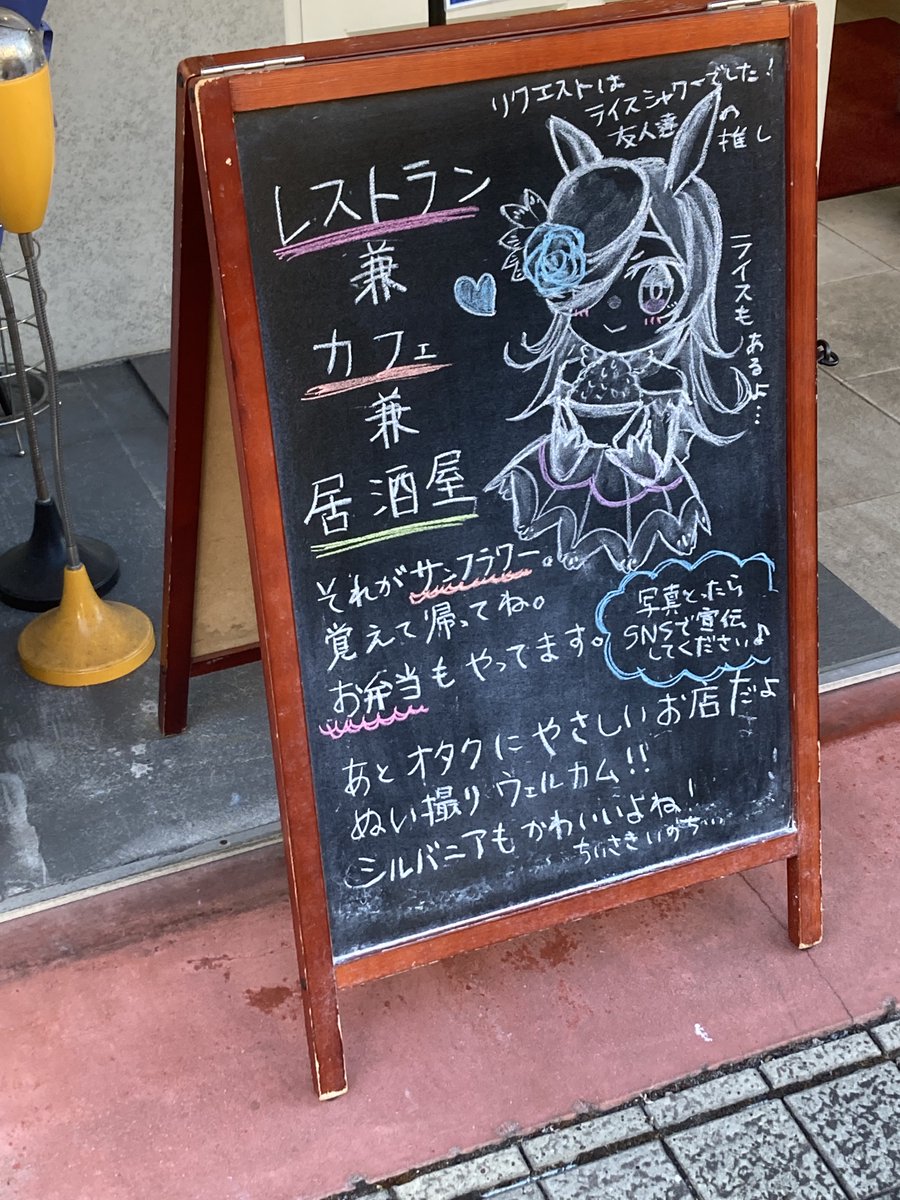 リクエストは
ライスシャワーでした!
友人達の推し
レストラン
兼
カフェ
兼
居酒屋
ライスもあるよ…
それがサンフラワー。
覚えて帰ってね。
お弁当もやってます。
写真とったら
SNSで宣伝
してください♪
あとオタクにやさしいお店だよ
ぬい撮りウェルカム!!
シルバニアもかわいいよね!
ちいさきいのち…